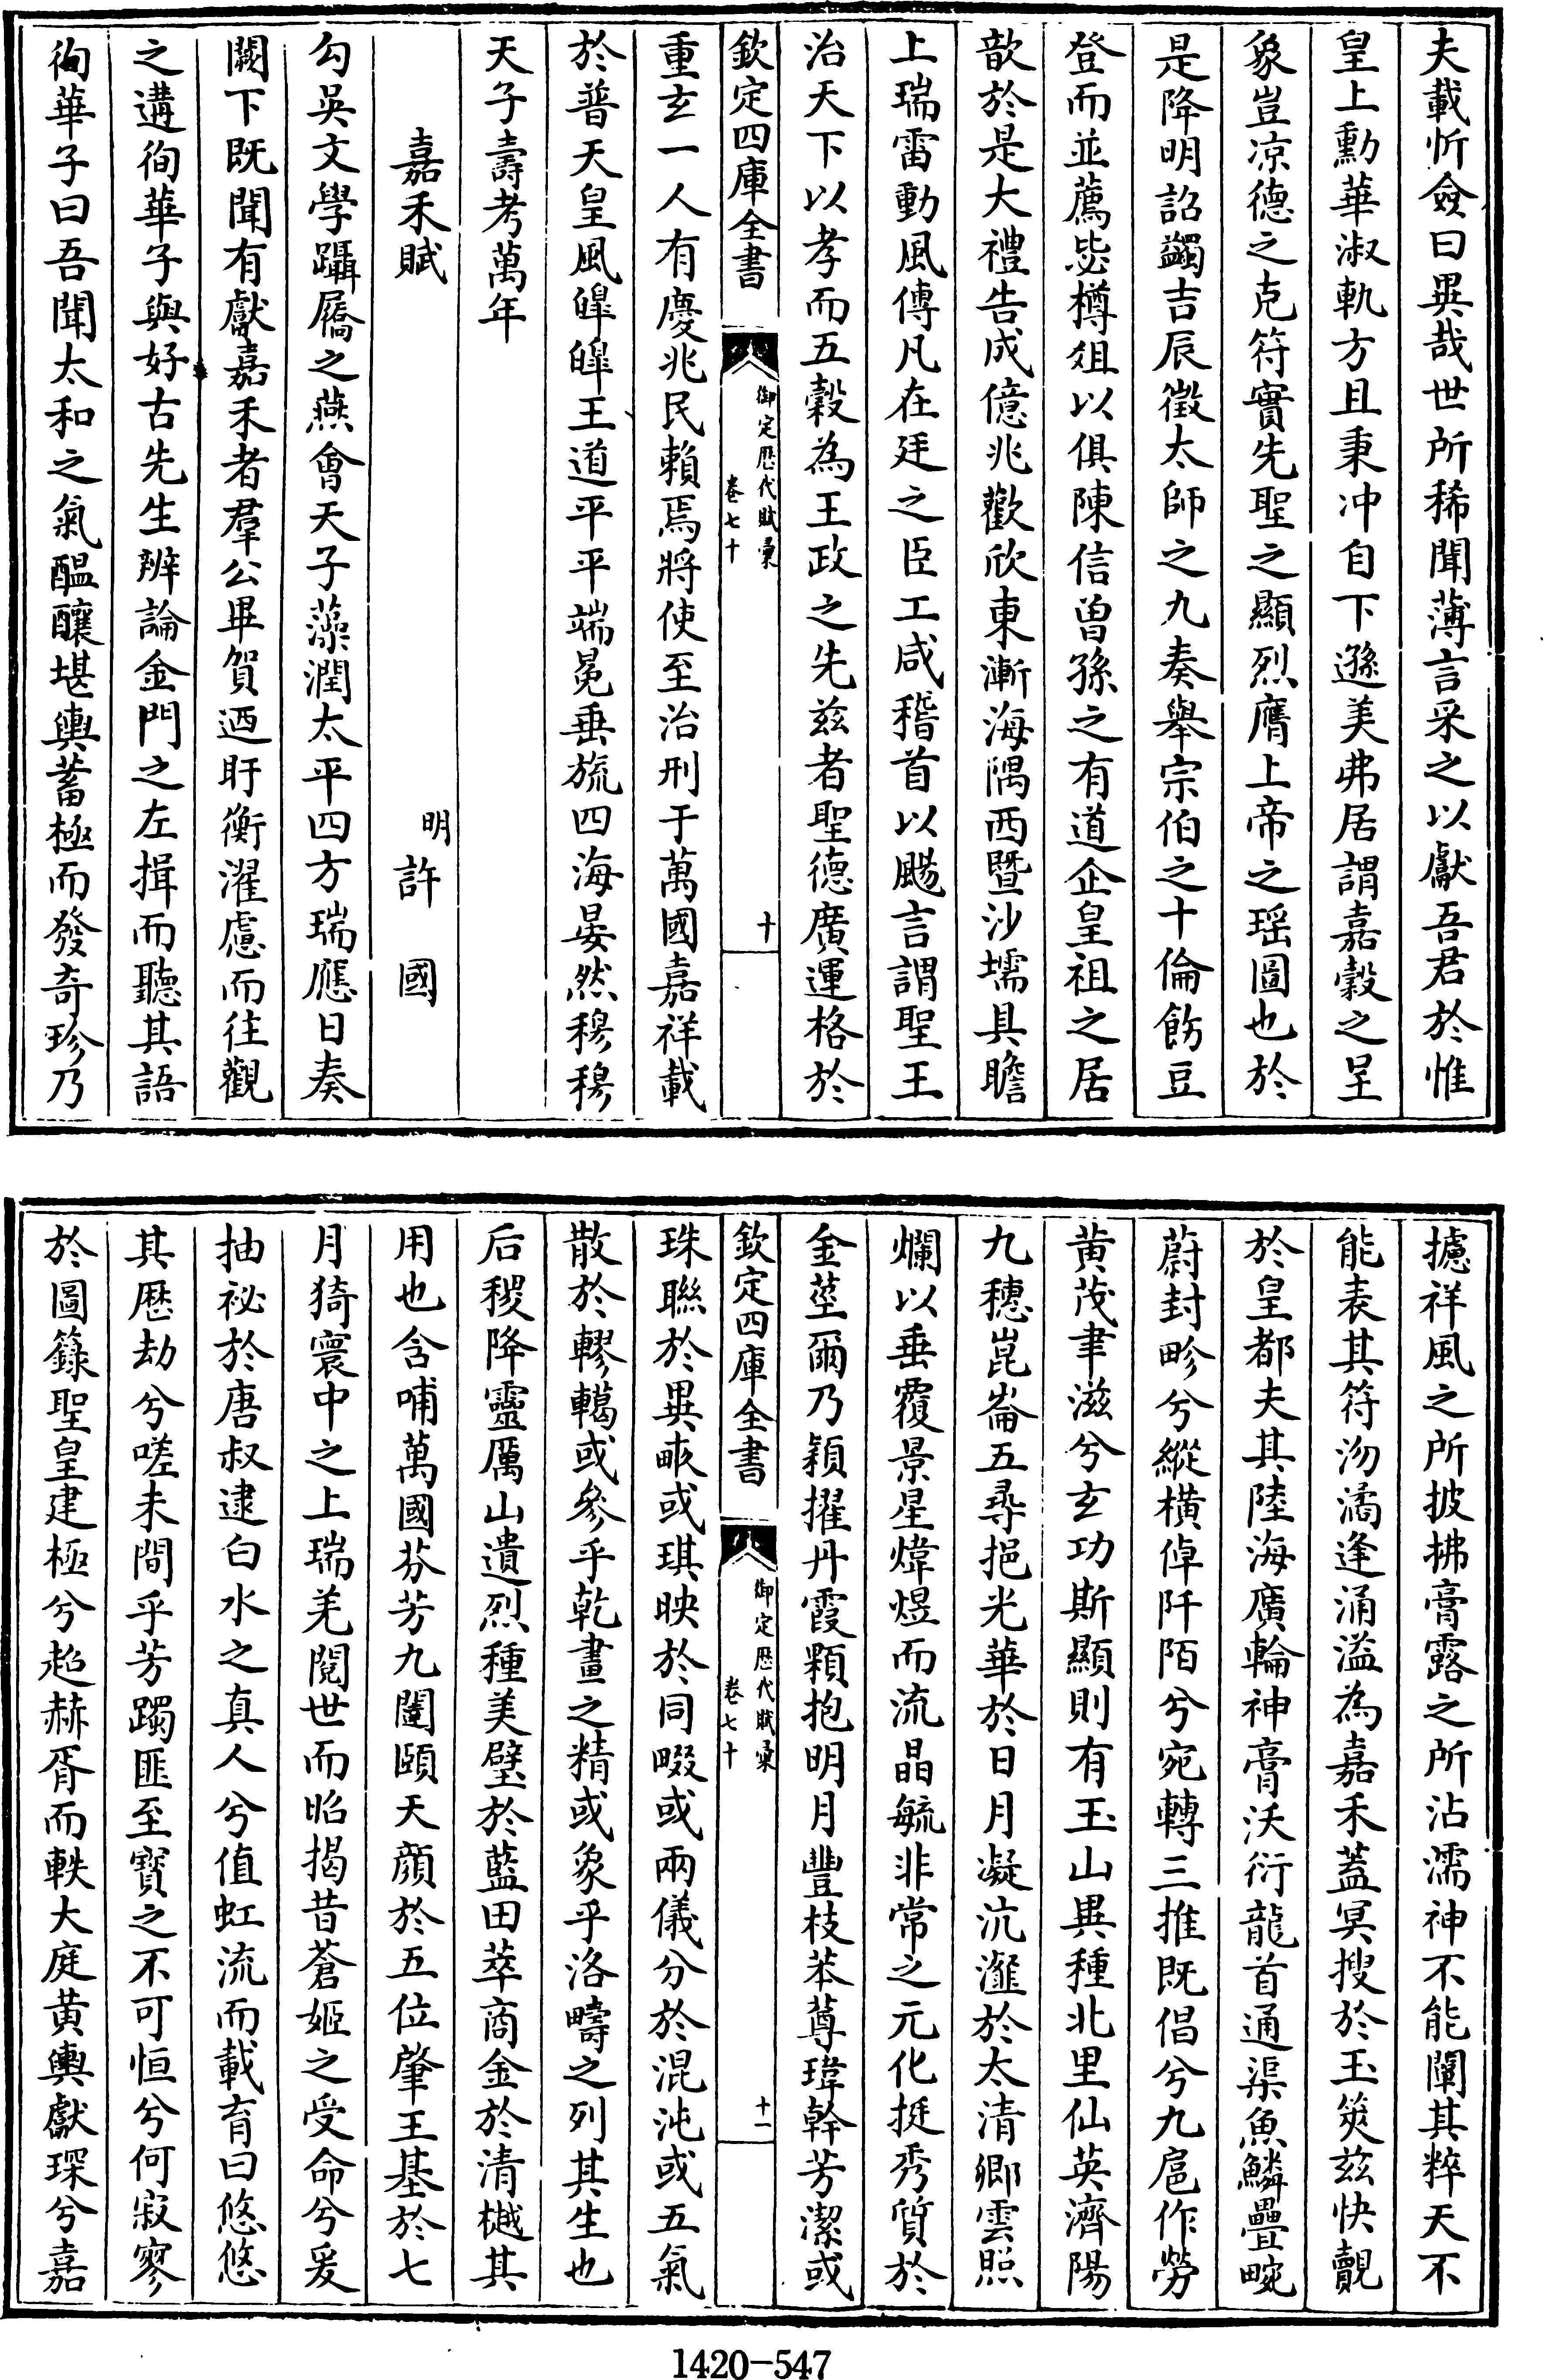 夫載忻僉曰異哉世所稀聞薄言采之以獻吾君於惟
皇上勳華淑軌方且秉冲自下遜美弗居謂嘉榖之呈
象豈凉德之克符實先聖之顯烈膺上帝之瑶圖也於
是降明詔蠲吉辰徵太師之九奏舉宗伯之十倫飭豆
登而並薦毖樽俎以俱陳信曽孫之有道企皇祖之居
歆於是大禮告成億兆歡欣東漸海隅西暨沙壖具瞻
上瑞雷動風傳凡在廷之臣工咸稽首以颺言謂聖王
治天下以孝而五穀為王政之先兹者聖德廣運格於
欽定四庫全書
御定歴代賦彙
卷七十
十
重玄一人有慶兆民賴焉將使至治刑于萬國嘉祥載
於普天皇風皥皥王道平平端冕垂旒四海晏然穆穆
天子壽考萬年
嘉禾賦
明許國
勾吳文學躡屩之燕會天子藻潤太平四方瑞應日奏
闕下既聞有獻嘉禾者羣公畢賀迺盱衡濯慮而往觀
之遘徇華子與好古先生辨論金門之左揖而聽其語
徇華子曰吾聞太和之氣醖釀堪輿蓄極而發奇珍乃
攄祥風之所披拂膏露之所沾濡神不能闡其粹天不
能表其符沕潏逢涌溢為嘉禾蓋冥搜於玉筴兹快覿
於皇都夫其陸海廣輪神膏沃衍龍首通渠魚鱗疊畹
蔚封畛兮縱横倬阡陌兮宛轉三推既倡兮九扈作勞
黄茂聿滋兮玄功斯顯則有玉山異種北里仙英濟陽
九穗崑崙五尋挹光華於日月凝沆瀣於太清卿雲照
爛以垂覆景星煒煜而流晶毓非常之元化挺秀質於
金莖爾乃穎擢丹霞顆抱明月豐枝苯䔿瑋幹芳潔或
欽定四庫全書
御定歴代賦彙
卷七十
十一
珠聯於異畞或琪映於同畷或兩儀分於混沌或五氣
散於轇轕或參乎乾畫之精或象乎洛疇之列其生也
后稷降靈厲山遺烈種美璧於藍田萃商金於清樾其
用也含哺萬國芬芳九闥頤天顔於五位肇王基於七
月猗寰中之上瑞羌閱世而昭揭昔蒼姬之受命兮爰
抽祕於唐叔逮白水之真人兮值虹流而載育曰悠悠
其歴劫兮嗟未間乎芳躅匪至寶之不可恒兮何寂寥
於圖籙聖皇建極兮超赫胥而軼大庭黄輿獻琛兮嘉
1420-547